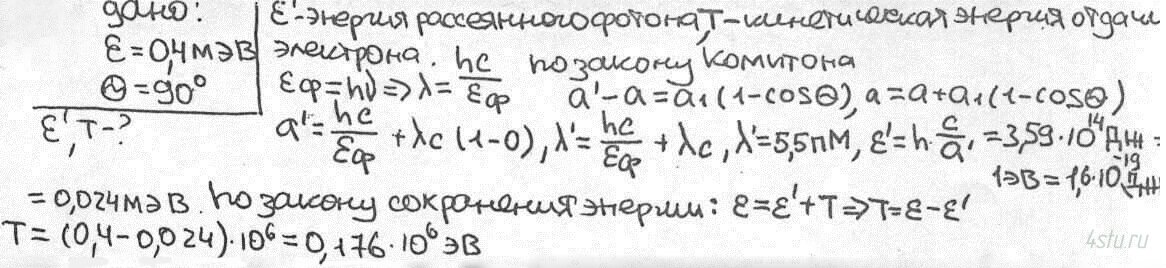 дано:
ε=0,4мэВ
Θ=90°
ε',T-?
ε'-энергия рассеянного фотона, T-кинетическая энергия отдачи
электрона. εф=hν=>λ=hc/εф по закону комптона
a'-a=a₁(1-cosΘ), a=a+a₁(1-cosΘ)
a'=hc/εф+λc(1-0), λ'=hc/εф+λc, λ'=5,5пм, ε'=h·c/a',=3,59·10¹⁴Дж=
1эВ=1,6·10⁻¹⁹Дж
=0,024мэВ. По закону сохранения энергии: ε=ε'+T=>T=ε-ε'
T=(0,4-0,024)·10⁶=0,176·10⁶эВ
4stu.ru